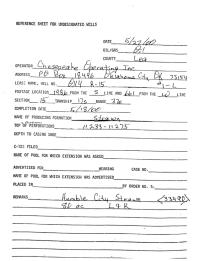 REFERENCE SHEET FOR UNDESIGNATED WELLS
DATE 5/23/00
OIL/GAS Oil
COUNTY Lea
OPERATOR Chesapeake Operating Inc
ADDRESS PO Box 18496 Oklahoma City OK 73154
LEASE NAME, WELL NO. #1-L
FOOTAGE LOCATION 1986 FROM THE S LINE AND 661 FROM THE W LINE
SECTION 15 TOWNSHIP 17s RANGE 37e
COMPLETION DATE 5/18/00
NAME OF PRODUCING FORMATION Strawn
TOP OF PERFORATIONS 11233-11275
DEPTH TO CASING SHOE
C-123 FILED
NAME OF POOL FOR WHICH EXTENSION WAS ASKED
ADVERTISED FOR HEARING CASE NO.
NAME OF POOL FOR WHICH EXTENSION WAS ADVERTISED
PLACED IN BY ORDER NO. R-
REMARKS Humble City Strawn (33490)
80 ac L&R